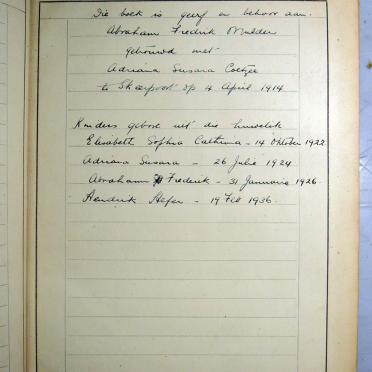 Die boek is geërf en behoor aan.
Abraham Fredrik Mulder
getrouwd met
Adriana Susara Coetzee
te Skeerpoort op 4 April 1914
Kinders gebore uit die huwelik
Elisabeth Sophia Cathrina - 14 Oktober 1922
Adriana Susara - 26 Julie 1924
Abraham Frederik - 31 Januarie 1926
Hendrik - 19 Feb 1936.